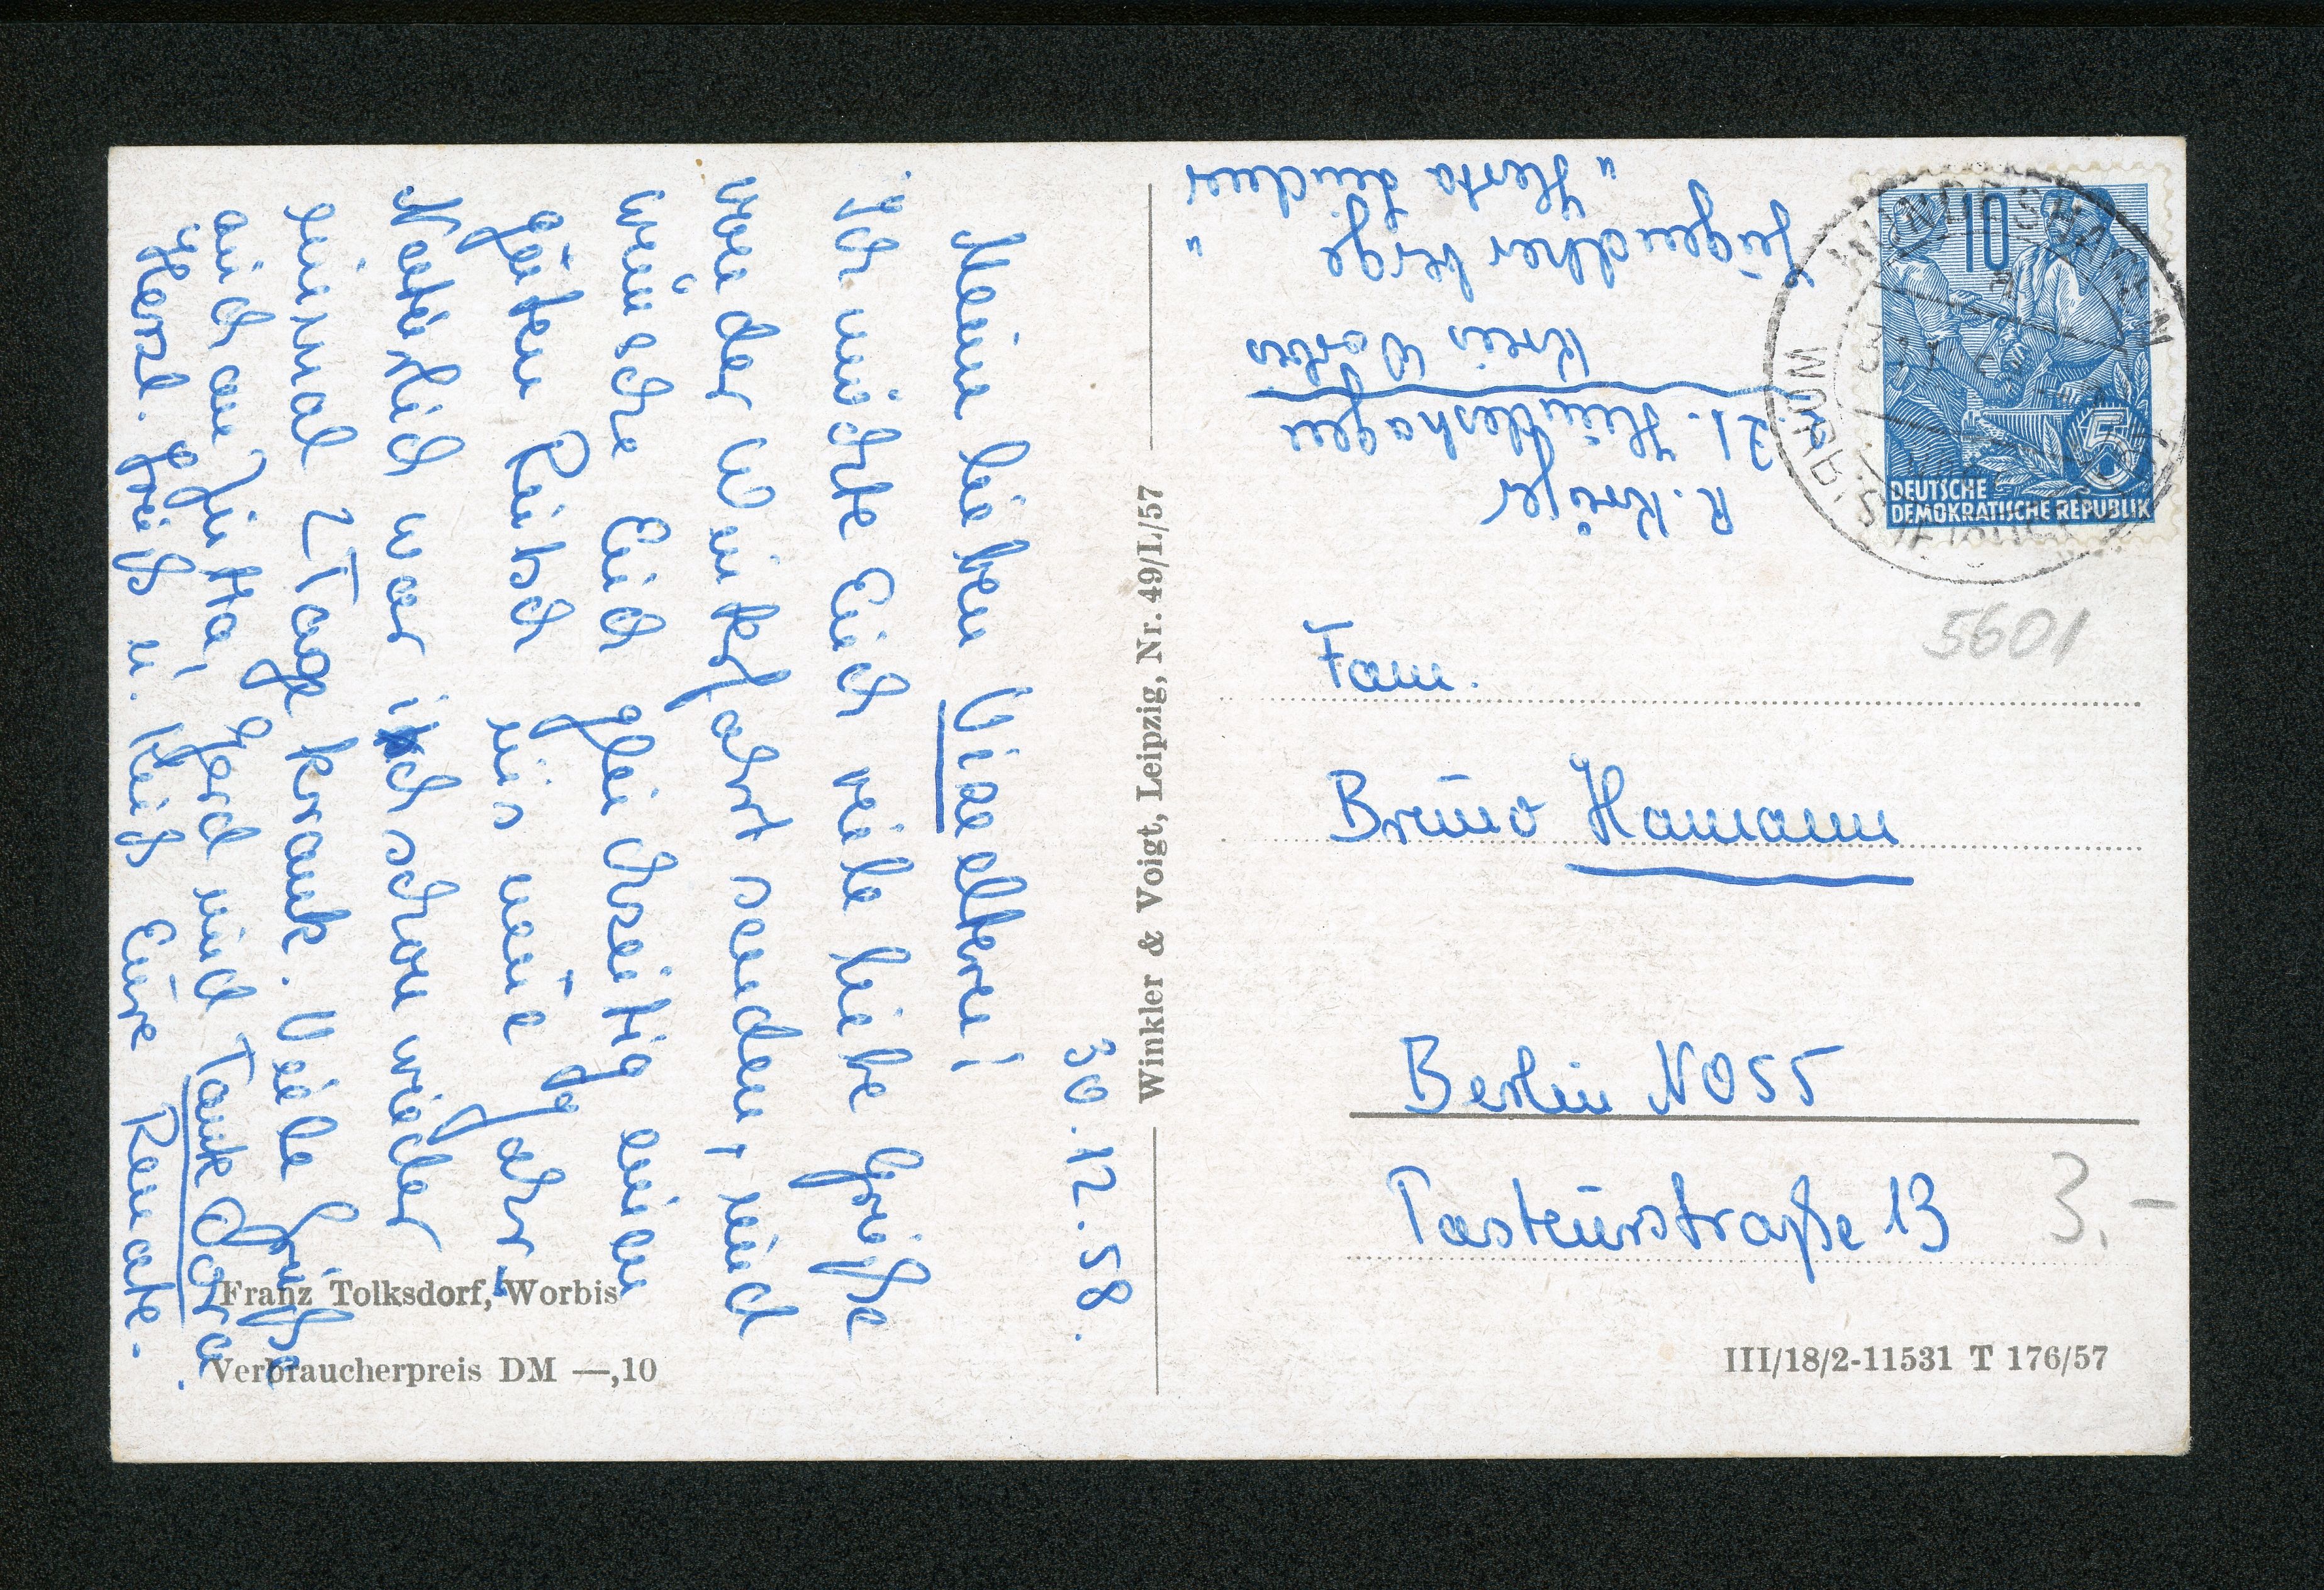 30.12.58.
Meine lieben Vizeeltern!
Ich möchte Euch viele liebe Grüße
von der Winterfahrt senden, und
wünsche Euch gleichzeitig einen
guten Rutsch ins neue Jahr!
Natürlich war ich schon wieder
einmal 2 Tage krank. Viele Grüße
auch an Jutta, Gerd und Tante Dora.
Herzl. Gruß u. Kuß Eure Renate.
Franz Tolksdorf, Worbis
Verbraucherpreis DM —,10
Winkler & Voigt, Leipzig, Nr. 49/L/57
R. Kröfer
z.Zt. Hundeshagen
Kreis Worbis
Jugendherberge
"Herta Lindner"
10
5
DEUTSCHE
DEMOKRATISCHE REPUBLIK
5601
Fam.
Bruno Hamann
Berlin NO55
Pasteurstraße 13
3.-
III/18/2-11531 T 176/57